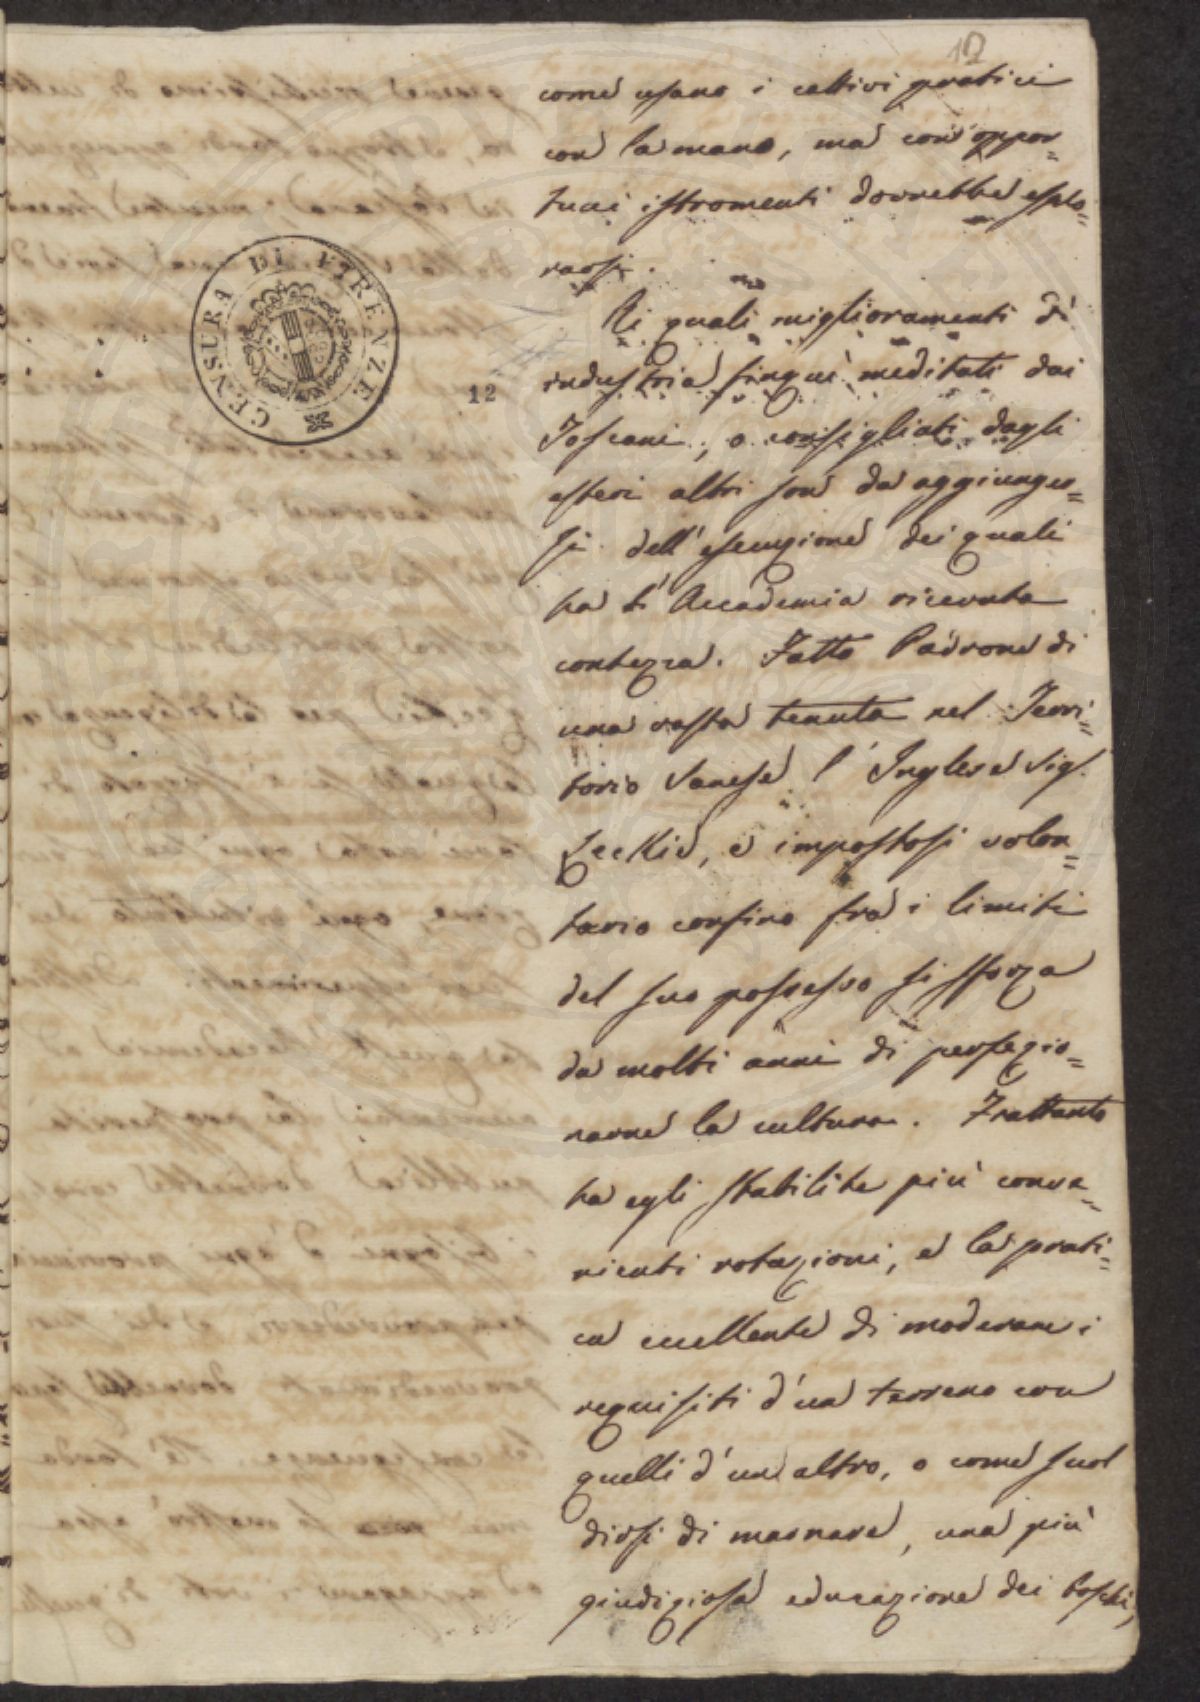 12
come usano i cattivi pratici
con la mano, ma con oppor=
tuni istromenti dovrebbe esplo=
rarsi.
Ai quali miglioramenti di
industria finquì meditati dai
Toscani, o consigliati dagli
esteri altri son da aggiunger=
si dell'esecuzione dei quali
ha l'Accademia ricevuta
contezza. Fatto Padrone di
una vasta tenuta nel Terri=
torio Sanese l'Inglese Sig.
Leckie, e impostosi volon=
tario confino fra i limiti
del suo possesso si sforza
da molti anni di perfezio=
narne la cultura. Frattanto
ha egli stabilite più conve=
nienti rotazioni, e la prati=
ca eccellente di moderare i
requisiti d'un terreno con
quelli d'un altro, o come suol
dirsi di marnare, una più
giudiziosa educazione dei boschi,
CENSURA DI FIRENZE
12